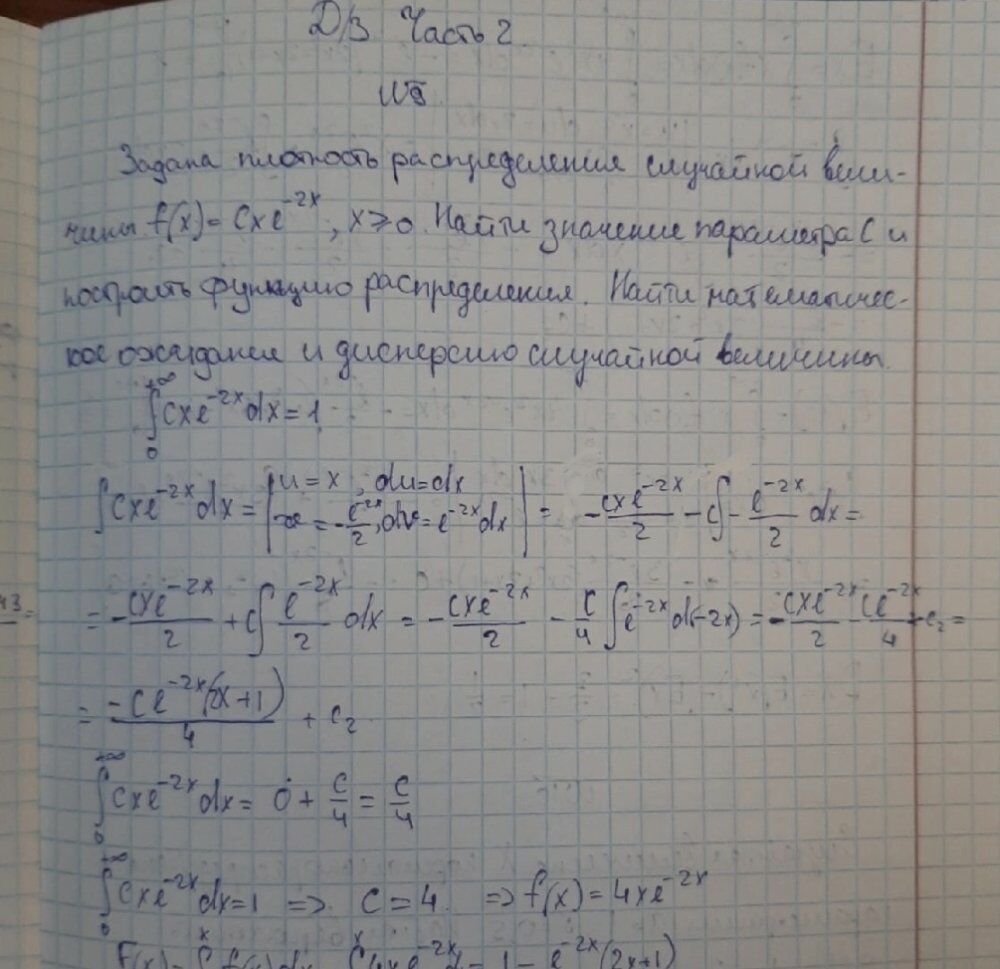 Д/З Часть 2
Задана плотность распределения случайной вели-
чины f(x) = Cxe^{-2x}, x ≥ 0. Найти значение параметра C и
построить функцию распределения. Найти математичес-
кое ожидание и дисперсию случайной величины.
∫_0^{+∞} Cxe^{-2x}dx = 1
∫Cxe^{-2x}dx = | u = x, du = dx; = -e^{-2x}/2, dv = e^{-2x}dx | = -cxe^{-2x}/2 - c∫-e^{-2x}/2 dx =
= -cxe^{-2x}/2 + c∫e^{-2x}/2 dx = -cxe^{-2x}/2 - c/4 ∫e^{-2x}d(-2x) = -cxe^{-2x}/2 - ce^{-2x}/4 + c_2 =
= -Ce^{-2x}(2x+1)/4 + c_2
∫_0^{+∞} Cxe^{-2x}dx = 0 + c/4 = c/4
∫_0^{+∞} Cxe^{-2x}dx = 1 => C = 4 => f(x) = 4xe^{-2x}
F(x) = 1 - e^{-2x}(2x+1)